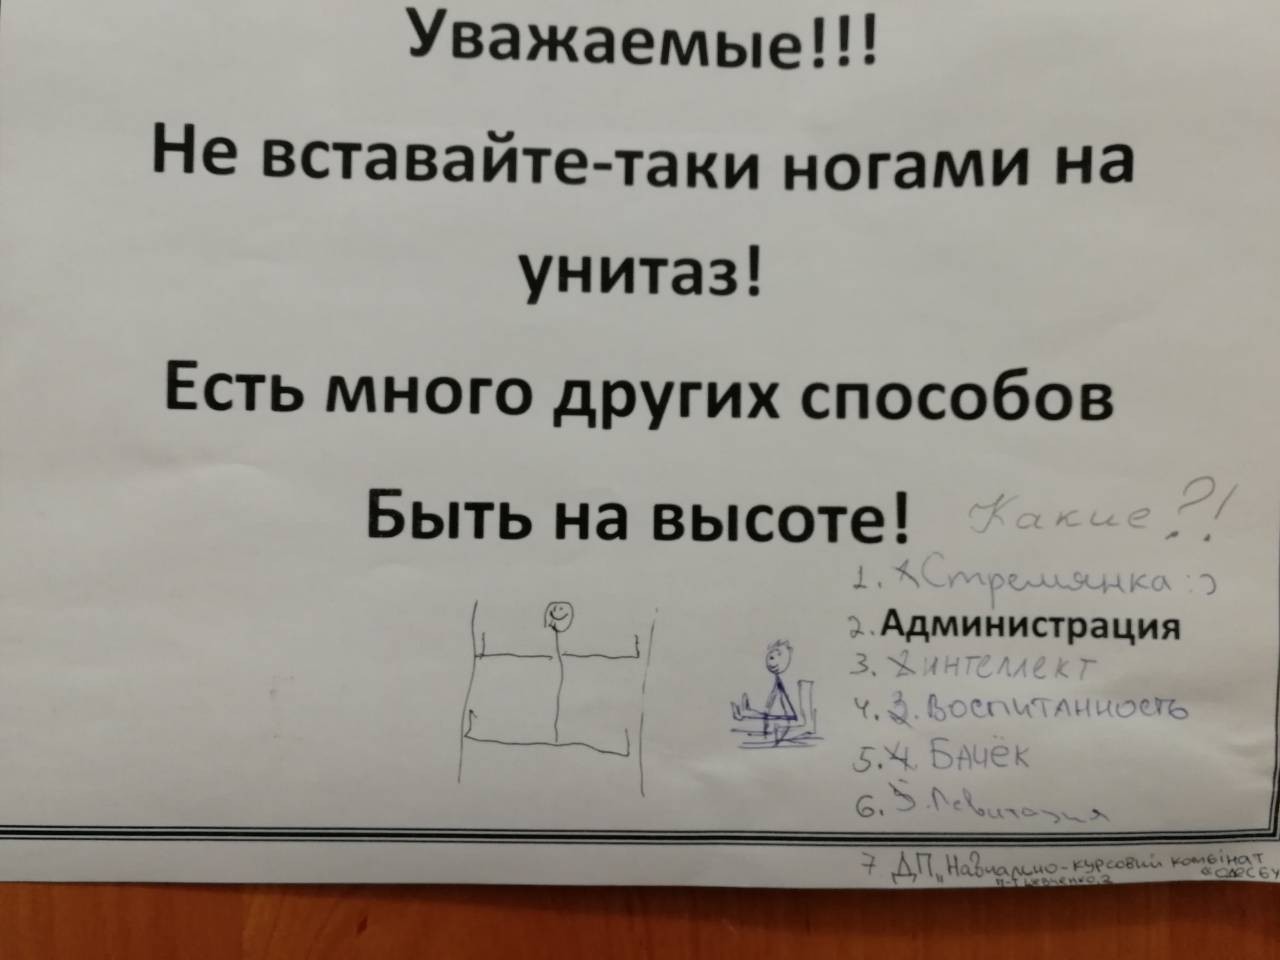 Уважаемые!!!
Не вставайте-таки ногами на
унитаз!
Есть много других способов
Быть на высоте!
Какие?!
1. Стремянка :)
2. Администрация
3. 2 интеллект
4. 3. Воспитанность
5. 4 Бачёк
6. 5. Левитация
7 ДП „Навчально-курсовий комбінат